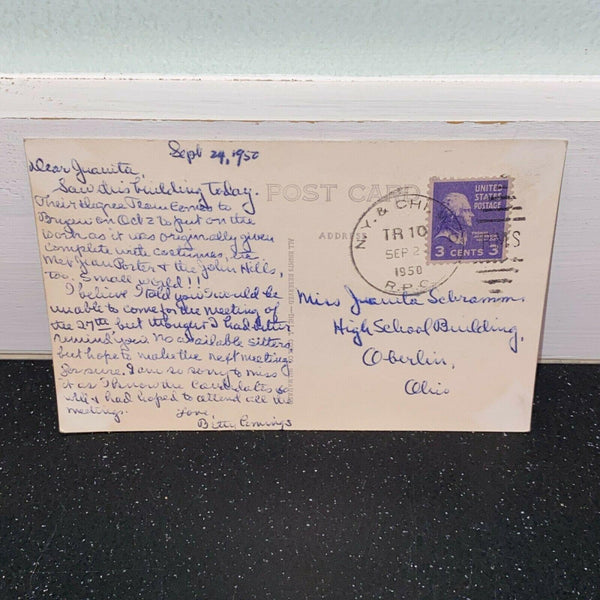 Sept 24, 1950
Dear Juanita,
Saw this building today.
Their degree Team comes to
Bryan on Oct 2 to put on the
work as it was originally given
complete with costumes, etc.
Met Jean Porter & the John Hills,
too. Small world!!
I believe I told you I would be
unable to come for the meeting of
the 27th but thought I had better
remind you. No available sitters,
but hope to make the next meeting
for sure. I am so sorry to miss
it as I know the candidates so
well & had hoped to attend all the
meetings.
Love,
Betty
POST CARD
ADDRESS
ALL RIGHTS RESERVED
N.Y. & CHI
TR 10
SEP 2
1950
R.P.O.
UNITED
STATES
POSTAGE
3 CENTS 3
Miss Juanita Schramm,
High School Building,
Oberlin,
Ohio